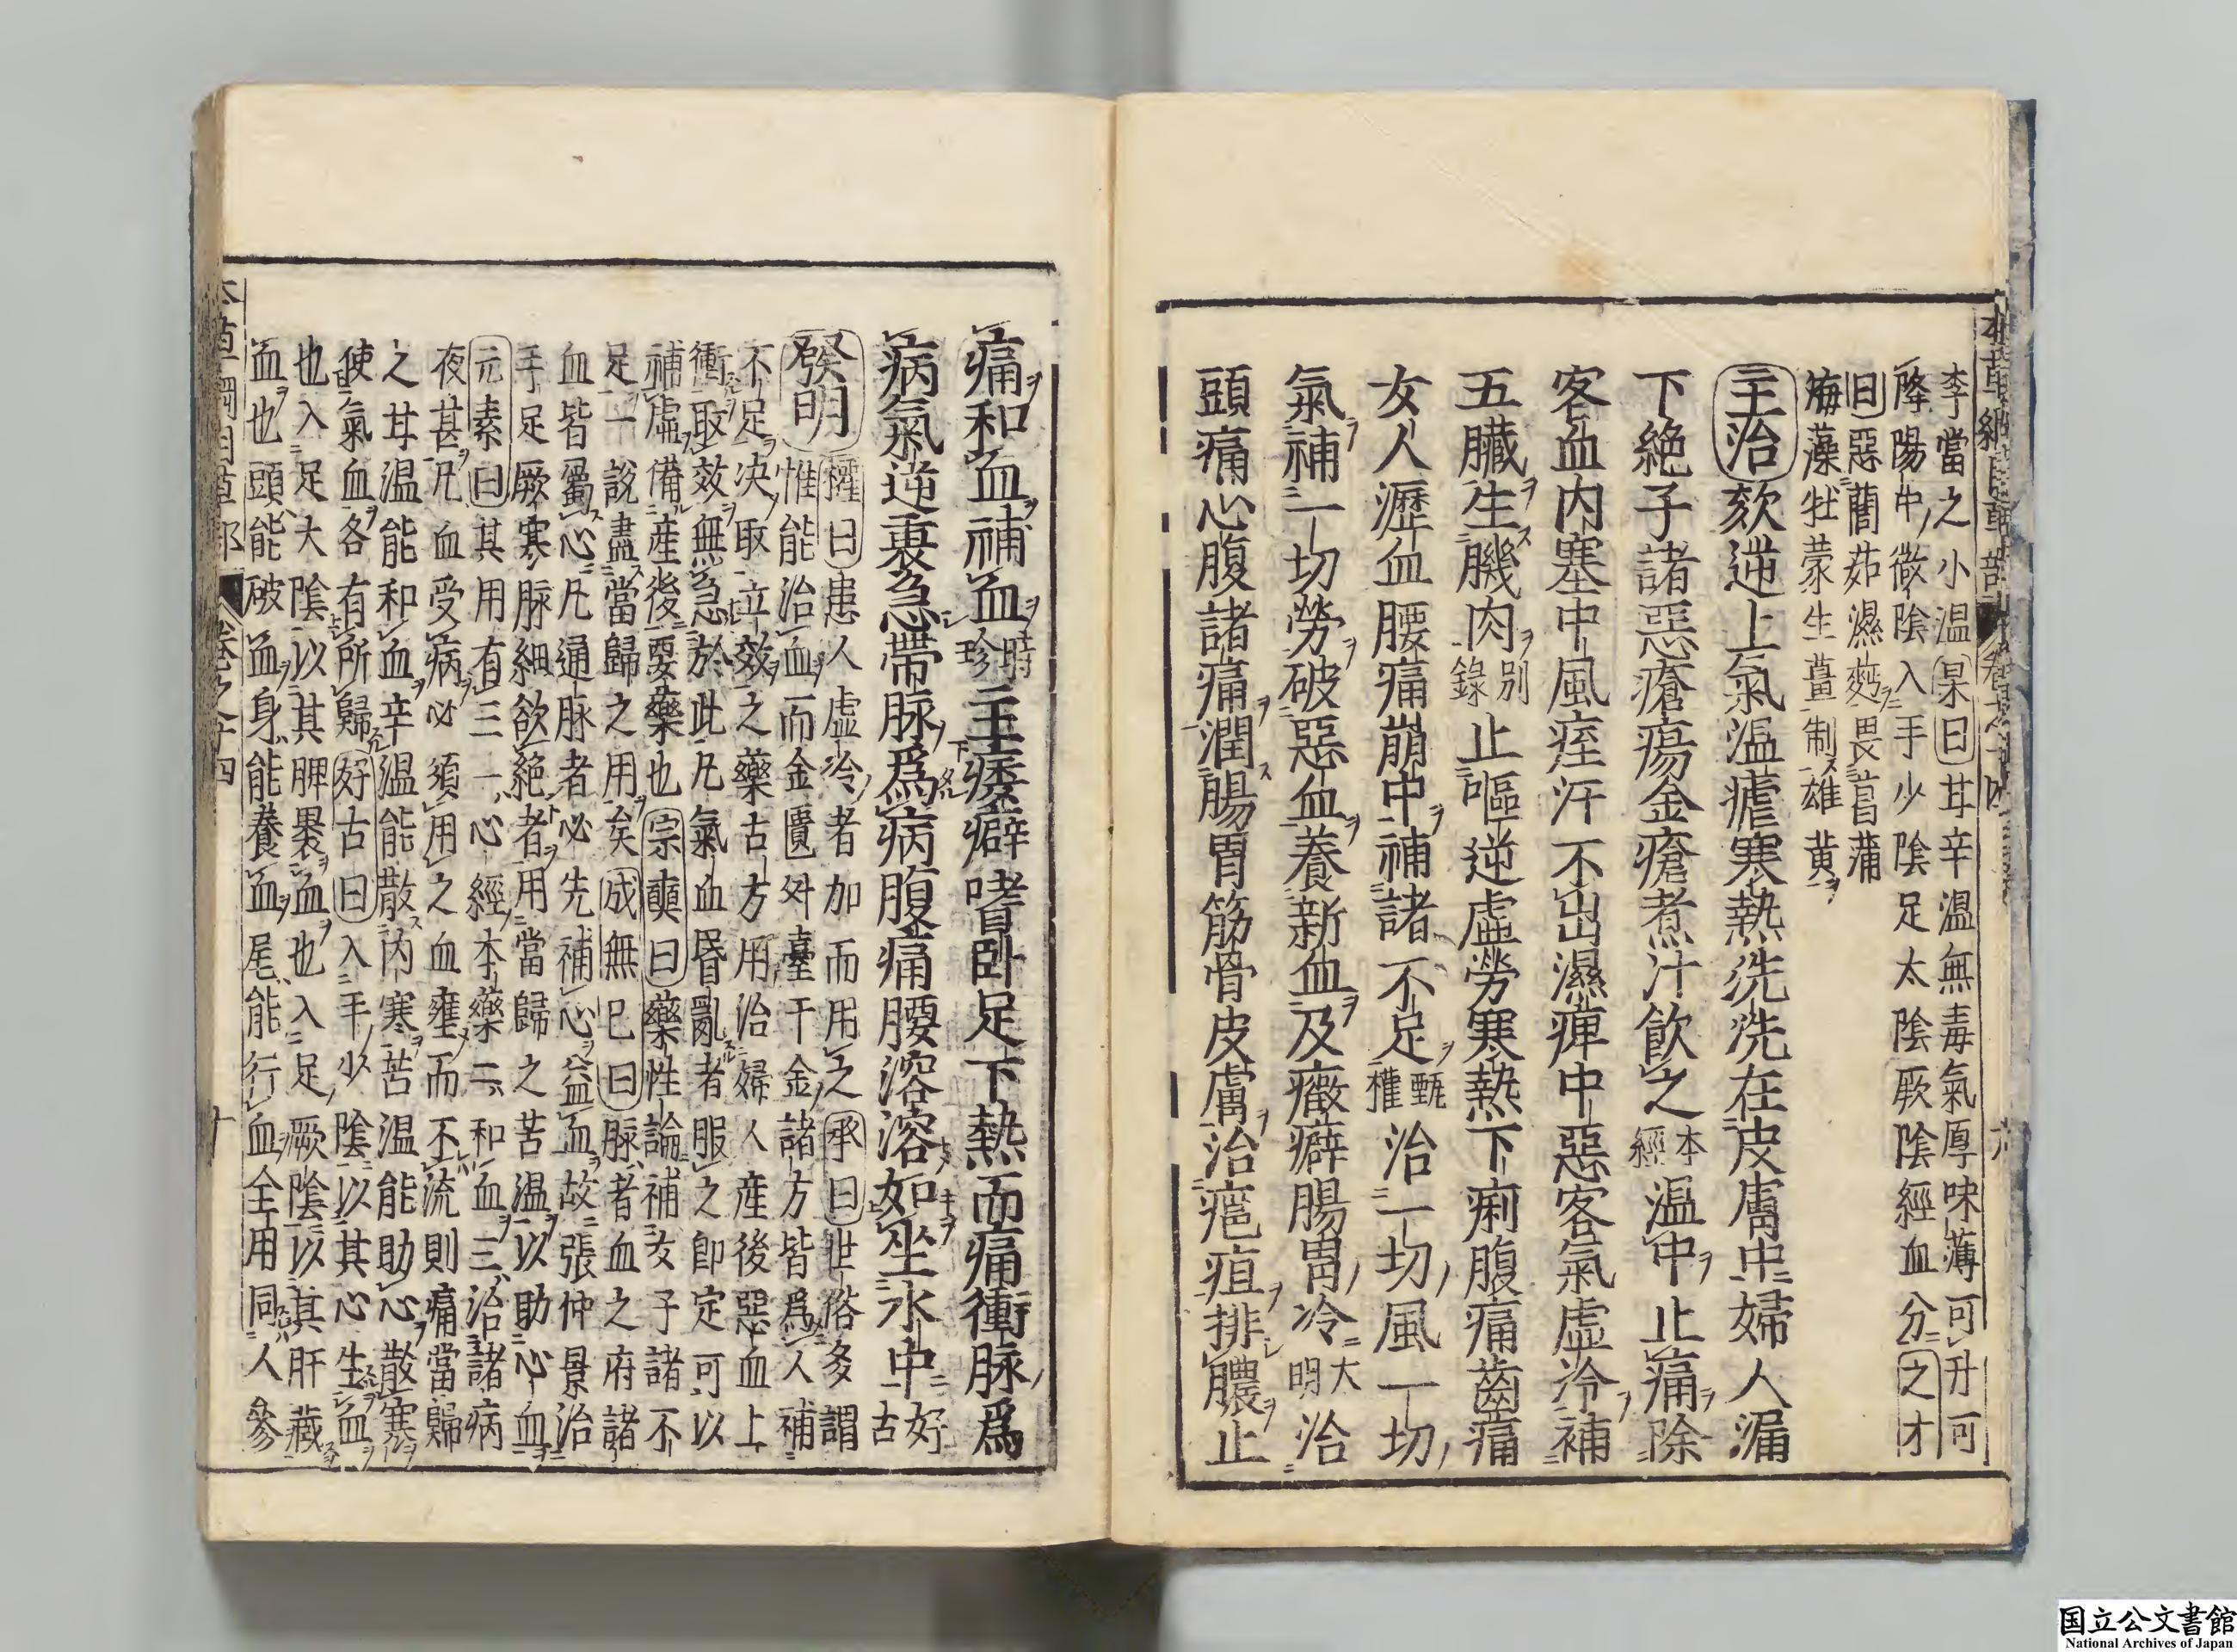 李當之小温杲曰甘辛温無毒氣厚味薄可升可
降陽中微陰入手少陰足太陰厥陰經血分之才
曰惡䕡茹濕麪畏菖蒲
海藻牡蒙生薑制雄黄
主治欬逆上氣温瘧寒熱洗洗在皮膚中婦人漏
下絶子諸惡瘡瘍金瘡煮汁飲之本經温中止痛除
客血内塞中風痓汗不出濕痺中惡客氣虚冷補
五臟生肌肉別錄止嘔逆虚勞寒熱下痢腹痛齒痛
女人瀝血腰痛崩中補諸不足甄權治一切風一切
氣補一切勞破惡血養新血及癥癖腸胃冷大明治
頭痛心腹諸痛潤腸胃筋骨皮膚治癰疽排膿止
痛和血補血時珍主痿癖嗜卧足下熱而痛衝脉爲
病氣逆裏急帶脉爲病腹痛腰溶溶如坐水中好古
發明權曰患人虚冷者加而用之承曰世俗多謂
惟能治血而金匱外臺千金諸方皆爲大補
不足决取立效之藥古方用治婦人産後惡血上
衝取效無急於此凡氣血昏亂者服之即定可以
補虚備産後要藥也宗奭曰藥性論補女子諸不
足一說盡當歸之用矣成無已曰脉者血之府諸
血皆屬心凡通脉者必先補心益血故張仲景治
手足厥寒脉細欲絶者用當歸之苦温以助心血
元素曰其用有三一心經本藥二和血三治諸病
夜甚凡血受病必須用之血壅而不流則痛當歸
之甘温能和血辛温能散内寒苦温能助心散寒
使氣血各有所歸好古曰入手少陰以其心生血
也入足太陰以其脾裹血也入足厥陰以其肝藏
血也頭能破血身能養血尾能行血全用同人參
本草綱目草部 卷之十四 十
国立公文書館
National Archives of Japan